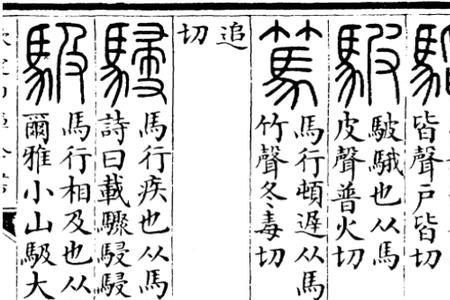 皆聲戶皆切
駊
駊騀也从馬
皮聲普火切
篤
馬行頓遲从馬
竹聲冬毒切
追
切
駸
馬行疾也从馬
詩曰載驟駸駸
馺
馬行相及也从
爾雅小山馺大